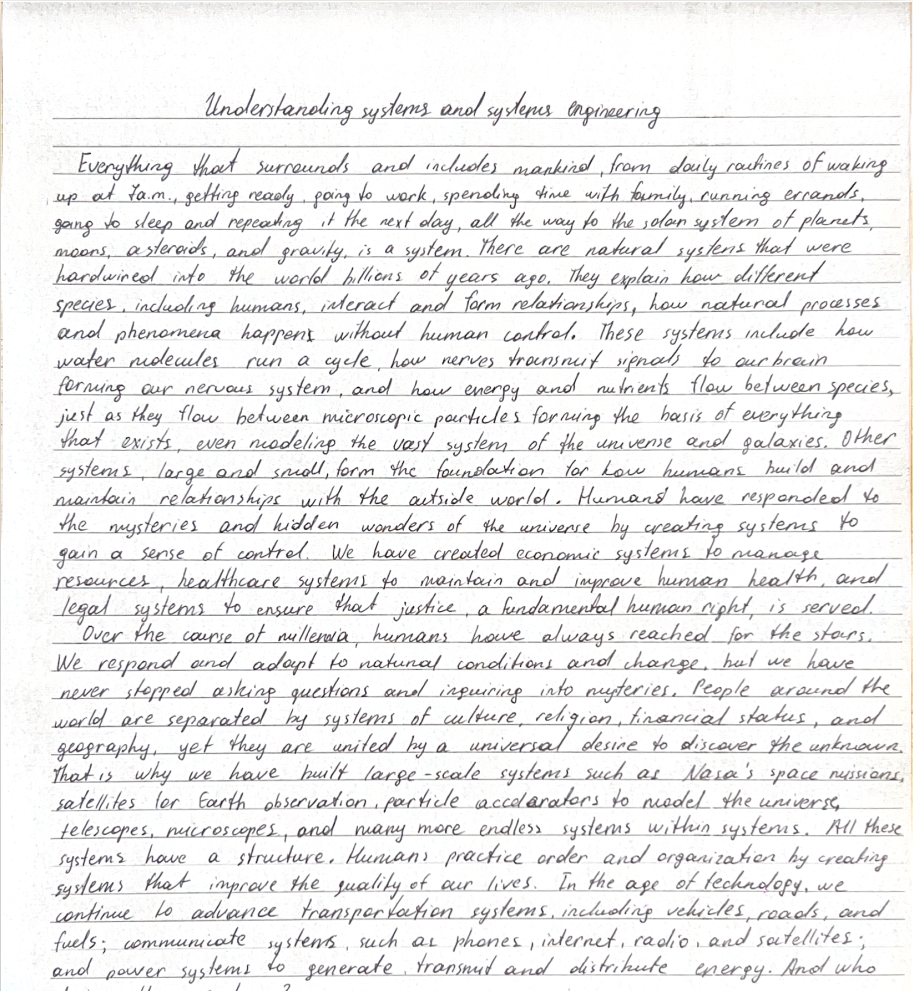 Understanding systems and systems engineering
Everything that surrounds and includes mankind, from daily routines of waking
up at 7a.m., getting ready, going to work, spending time with family, running errands,
going to sleep and repeating it the next day, all the way to the solar system of planets,
moons, asteroids, and gravity, is a system. There are natural systems that were
hardwired into the world billions of years ago. They explain how different
species, including humans, interact and form relationships, how natural processes
and phenomena happens without human control. These systems include how
water molecules run a cycle, how nerves transmit signals to our brain
forming our nervous system, and how energy and nutrients flow between species,
just as they flow between microscopic particles forming the basis of everything
that exists, even modeling the vast system of the universe and galaxies. Other
systems, large and small, form the foundation for how humans build and
maintain relationships with the outside world. Humans have responded to
the mysteries and hidden wonders of the universe by creating systems to
gain a sense of control. We have created economic systems to manage
resources, healthcare systems to maintain and improve human health, and
legal systems to ensure that justice, a fundamental human right, is served.
Over the course of millennia, humans have always reached for the stars.
We respond and adapt to natural conditions and change, but we have
never stopped asking questions and inquiring into mysteries. People around the
world are separated by systems of culture, religion, financial status, and
geography, yet they are united by a universal desire to discover the unknown.
That is why we have built large-scale systems such as Nasa's space missions,
satellites for Earth observation, particle accelerators to model the universe,
telescopes, microscopes, and many more endless systems within systems. All these
systems have a structure. Humans practice order and organization by creating
systems that improve the quality of our lives. In the age of technology, we
continue to advance transportation systems, including vehicles, roads, and
fuels; communicate systems, such as phones, internet, radio, and satellites;
and power systems to generate, transmit and distribute energy. And who